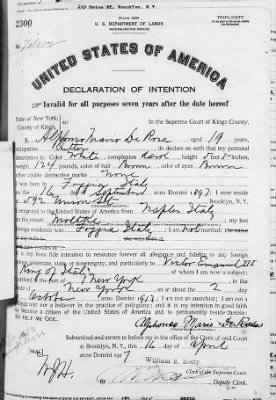 TRIPLICATE
2300
U. S. DEPARTMENT OF LABOR
NATURALIZATION SERVICE
UNITED STATES OF AMERICA
DECLARATION OF INTENTION
Invalid for all purposes seven years after the date hereof
State of New York,
County of Kings,
In the Supreme Court of Kings County.
I, Alfonso Mario De Rosa, aged 19 years,
occupation , do declare on oath that my personal
description is: Color White, complexion Dark, height 5 feet 2 inches,
weight 124 pounds, color of hair Brown, color of eyes Brown
other visible distinctive marks None
I was born in Foggia Italy
on the 16 day of September, anno Domini 1897; I now reside
at 592 Union St., Brooklyn, N.Y.
I emigrated to the United States of America from Naples Italy
on the vessel ; my last
foreign residence was Foggia Italy
It is my bona fide intention to renounce forever all allegiance and fidelity to any foreign
prince, potentate, state, or sovereignty, and particularly to Victor Emmanuel III
King of Italy, of whom I am now a subject;
I arrived at the port of New York, in the
State of New York, on or about the 2 day
of October, anno Domini; I am not an anarchist; I am not a
polygamist nor a believer in the practice of polygamy; and it is my intention in good faith
to become a citizen of the United States of America and to permanently reside therein:
SO HELP ME GOD.
Alphonso Mario DeRosa
Subscribed and sworn to before me in the office of the Clerk of said Court
at Brooklyn, N.Y., this 16 day of April
anno Domini 1917
[SEAL]
William F. Kelly
Clerk of the Supreme Court.
Deputy Clerk.